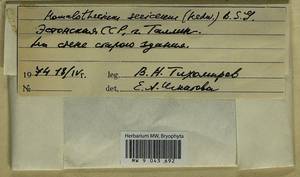 Homalothecium sericeum (Hedw.) B.S.G.
Эстонская ССР, г. Таллин.
На стене старого здания.
1974 18/IV г. leg. В.Н. Тихомиров
№ det. Е.А. Игнатова
Herbarium MW, Bryophyta
MW 9 043 692